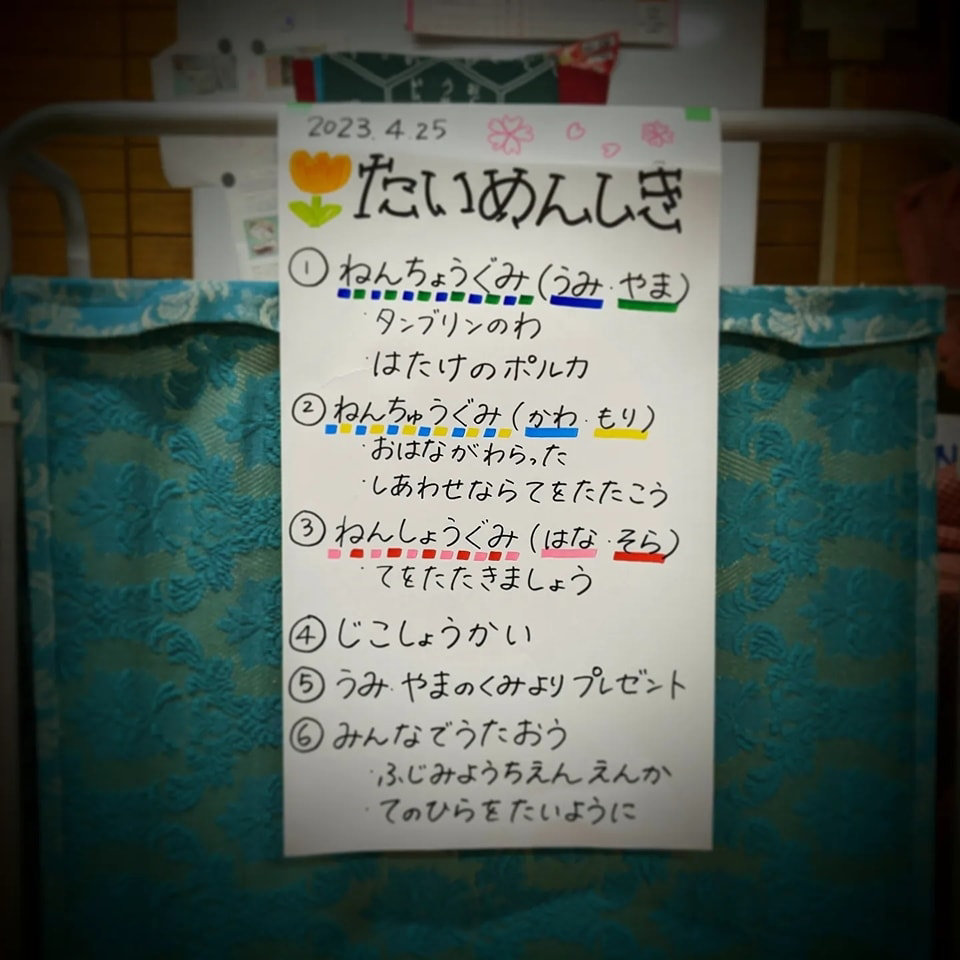 2023.4.25
たいめんしき
① ねんちょうぐみ(うみ・やま)
・タンブリンのわ
・はたけのポルカ
② ねんちゅうぐみ(かわ・もり)
・おはながわらった
・しあわせならてをたたこう
③ ねんしょうぐみ(はな・そら)
・てをたたきましょう
④ じこしょうかい
⑤ うみ・やまのくみよりプレゼント
⑥ みんなでうたおう
・ふじみようちえん えんか
・てのひらをたいように